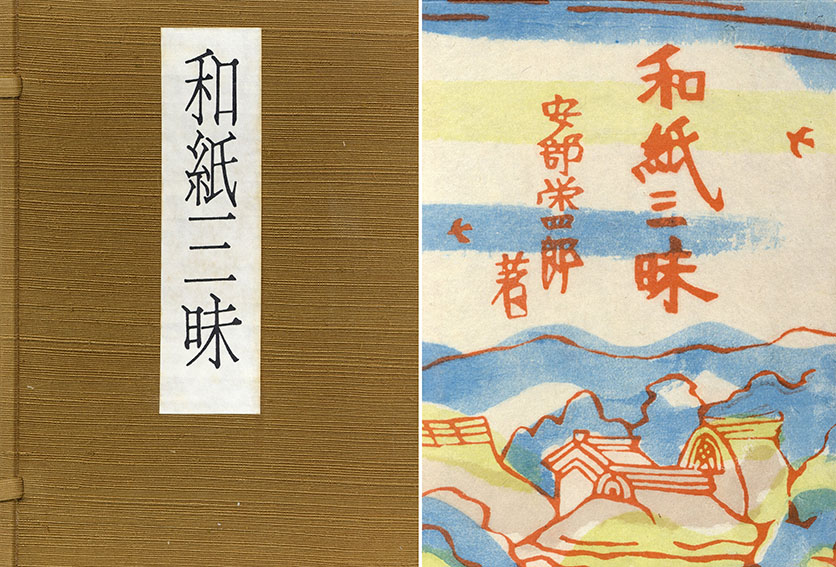 和紙三昧
和紙三昧
安部栄四郎
著